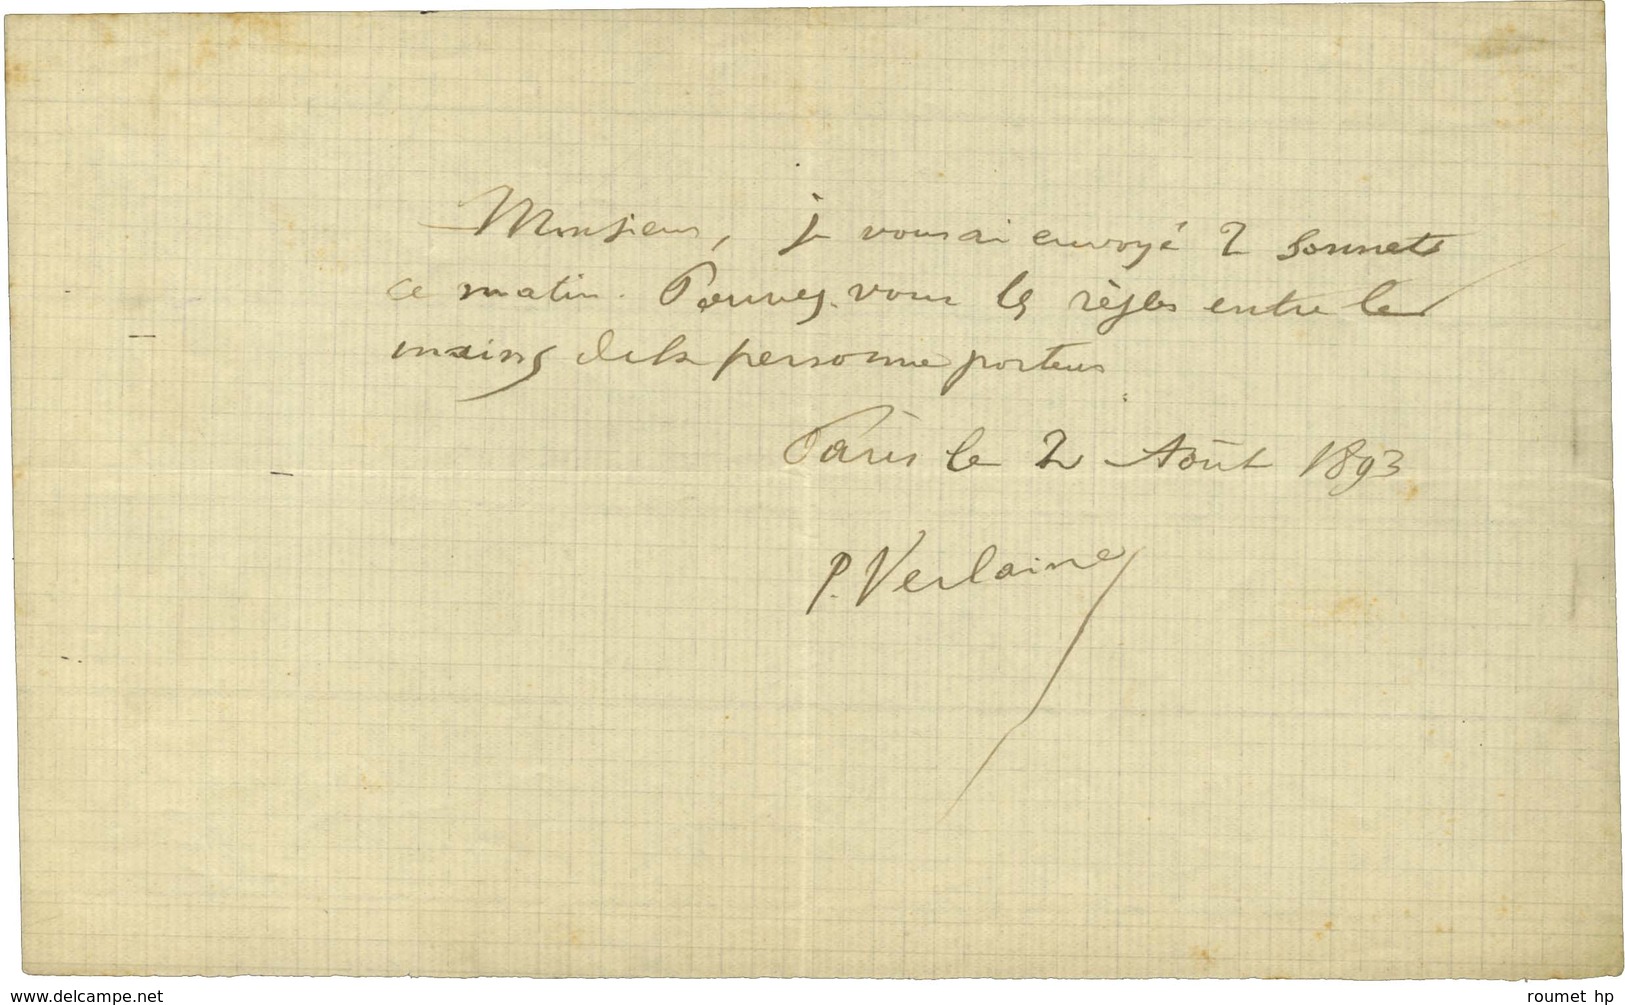 Monsieur, je vous ai envoyé 2 sonnets
ce matin. Pouvez-vous les régler entre les
mains de la personne porteur
Paris le 2 Août 1893
P. Verlaine
www.delcampe.net
roumet hp